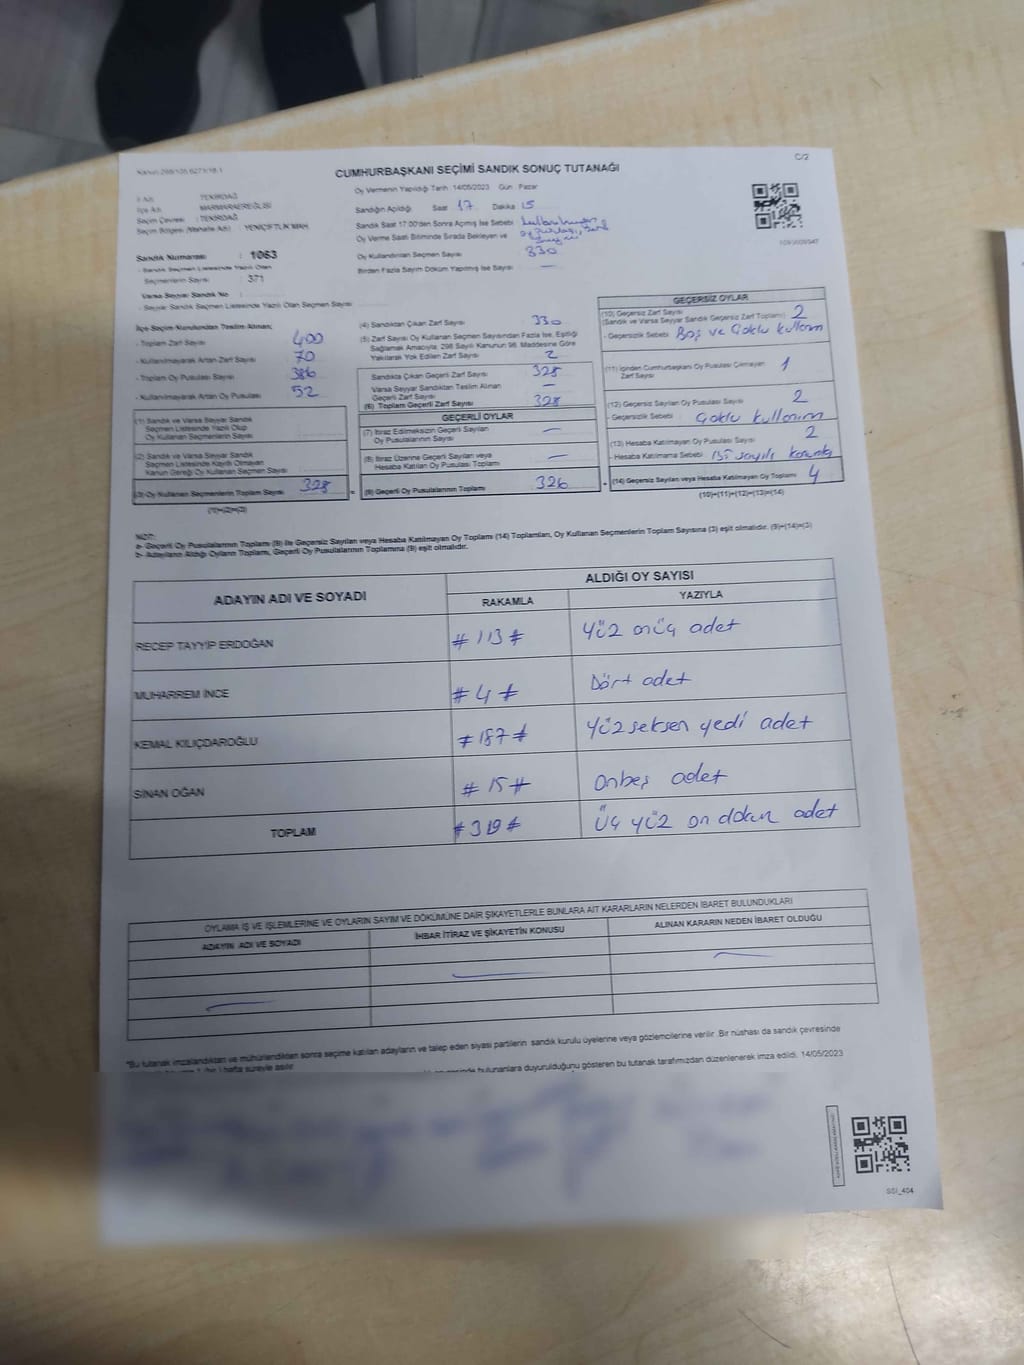 C/2
CUMHURBAŞKANI SEÇİMİ SANDIK SONUÇ TUTANAĞI
Oy Vermenin Yapıldığı Tarih : 14/05/2023 Gün : Pazar
İl Adı : TEKİRDAĞ
İlçe Adı : MARMARAEREĞLİSİ
Seçim Çevresi : TEKİRDAĞ
Seçim Bölgesi (Mahalle Adı) : YENİÇİFTLİK MAH.
Sandık Numarası : 1063
- Sandık Seçmen Listesinde Yazılı Olan
Seçmenlerin Sayısı : 371
Varsa Seyyar Sandık No :
- Seyyar Sandık Seçmen Listesinde Yazılı Olan Seçmen Sayısı
Sandığın Açıldığı Saat 17 Dakika 15
Sandık Saat 17:00'den Sonra Açılmış İse Sebebi
Oy Verme Saati Bitiminde Sırada Bekleyen ve
Oy Kullandırılan Seçmen Sayısı 330
Birden Fazla Sayım Döküm Yapılmış İse Sayısı —
İlçe Seçim Kurulundan Teslim Alınan;
- Toplam Zarf Sayısı 400
- Kullanılmayarak Artan Zarf Sayısı 70
- Toplam Oy Pusulası Sayısı 386
- Kullanılmayarak Artan Oy Pusulası 52
(1) Sandık ve Varsa Seyyar Sandık
Seçmen Listesinde Yazılı Olup
Oy Kullanan Seçmenlerin Sayısı
(2) Sandık ve Varsa Seyyar Sandık
Seçmen Listesinde Kayıtlı Olmayan
Kanun Gereği Oy Kullanan Seçmen Sayısı
(3) Oy Kullanan Seçmenlerin Toplam Sayısı 328
(1)+(2)=(3)
(4) Sandıktan Çıkan Zarf Sayısı 330
(5) Zarf Sayısı Oy Kullanan Seçmen Sayısından Fazla İse, Eşitliği
Sağlamak Amacıyla, 298 Sayılı Kanunun 98. Maddesine Göre
Yakılarak Yok Edilen Zarf Sayısı 2
Sandıkta Çıkan Geçerli Zarf Sayısı 328
Varsa Seyyar Sandıktan Teslim Alınan
Geçerli Zarf Sayısı —
(6) Toplam Geçerli Zarf Sayısı 328
GEÇERLİ OYLAR
(7) İtiraz Edilmeksizin Geçerli Sayılan
Oy Pusulalarının Sayısı —
(8) İtiraz Üzerine Geçerli Sayılan veya
Hesaba Katılan Oy Pusulası Toplamı —
(9) Geçerli Oy Pusulalarının Toplamı 326
GEÇERSİZ OYLAR
(10) Geçersiz Zarf Sayısı 2
(Sandık ve Varsa Seyyar Sandık Geçersiz Zarf Toplamı)
- Geçersizlik Sebebi Boş ve Çoklu kullanım
(11) İçinden Cumhurbaşkanı Oy Pusulası Çıkmayan
Zarf Sayısı 1
(12) Geçersiz Sayılan Oy Pusulası Sayısı 2
- Geçersizlik Sebebi Çoklu kullanım
(13) Hesaba Katılmayan Oy Pusulası Sayısı 2
- Hesaba Katılmama Sebebi sayılı
(14) Geçersiz Sayılan veya Hesaba Katılmayan Oy Toplamı 4
(10)+(11)+(12)+(13)=(14)
NOT:
a- Geçerli Oy Pusulalarının Toplamı (9) ile Geçersiz Sayılan veya Hesaba Katılmayan Oy Toplamı (14) Toplamları, Oy Kullanan Seçmenlerin Toplam Sayısına (3) eşit olmalıdır. (9)+(14)=(3)
b- Adayların Aldığı Oyların Toplamı, Geçerli Oy Pusulalarının Toplamına (9) eşit olmalıdır.
ADAYIN ADI VE SOYADI ALDIĞI OY SAYISI
RAKAMLA YAZIYLA
RECEP TAYYİP ERDOĞAN # 113 # Yüz onüç adet
MUHARREM İNCE # 4 # Dört adet
KEMAL KILIÇDAROĞLU # 187 # Yüz seksen yedi adet
SİNAN OĞAN # 15 # Onbeş adet
TOPLAM # 319 # Üç yüz on dokuz adet
OYLAMA İŞ VE İŞLEMLERİNE VE OYLARIN SAYIM VE DÖKÜMÜNE DAİR ŞİKAYETLERLE BUNLARA AİT KARARLARIN NELERDEN İBARET BULUNDUKLARI
ADAYIN ADI VE SOYADI İHBAR İTİRAZ VE ŞİKAYETİN KONUSU ALINAN KARARIN NEDEN İBARET OLDUĞU
*Bu tutanak imzalandıktan ve mühürlendikten sonra seçime katılan adayların ve talep eden siyasi partilerin sandık kurulu üyelerine veya gözlemcilerine verilir. Bir nüshası da sandık çevresinde
hafta süreyle asılır.
bulunanlara duyurulduğunu gösteren bu tutanak tarafımızdan düzenlenerek imza edildi. 14/05/2023
SSİ_404